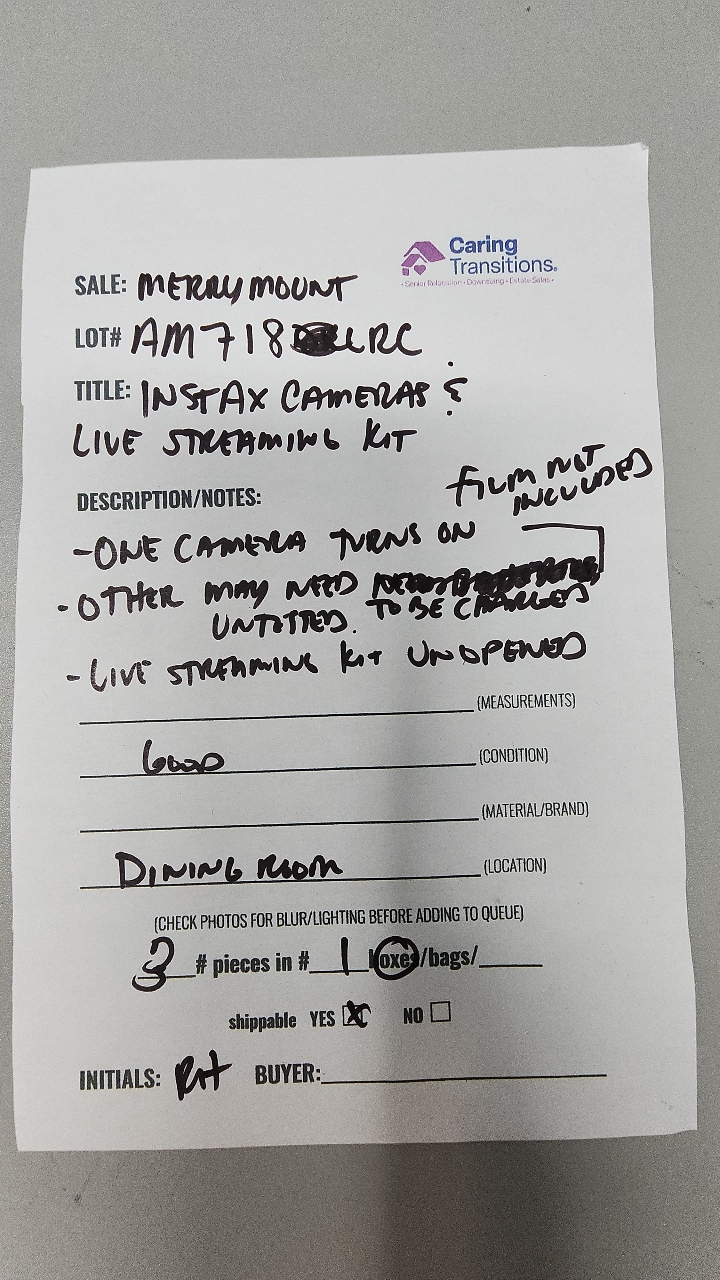 Caring
Transitions®
• Senior Relocation • Downsizing • Estate Sales •
SALE: MERRYMOUNT
LOT# AM718 LRC
TITLE: INSTAX CAMERAS &
LIVE STREAMING KIT
DESCRIPTION/NOTES:
FILM NOT
INCLUDED
-ONE CAMERA TURNS ON
-OTHER MAY NEED
UNTESTED. TO BE CHARGED
-LIVE STREAMING KIT UNOPENED
(MEASUREMENTS)
GOOD (CONDITION)
(MATERIAL/BRAND)
DINING ROOM (LOCATION)
(CHECK PHOTOS FOR BLUR/LIGHTING BEFORE ADDING TO QUEUE)
3 # pieces in # 1 boxes/bags/
shippable YES X NO
INITIALS: RH BUYER: